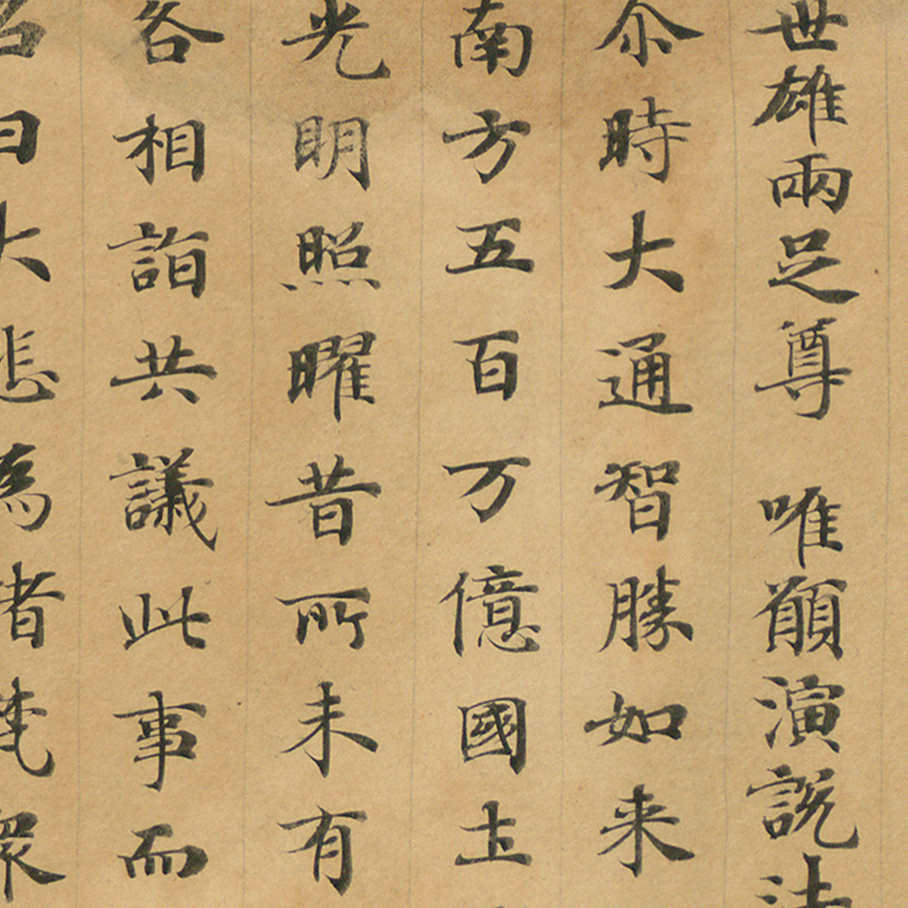 世雄兩足尊　唯願演説法
尒時大通智勝如来
南方五百万億國土
光明照曜昔所未有
各相詣共議此事而
名曰大悲為諸梵衆